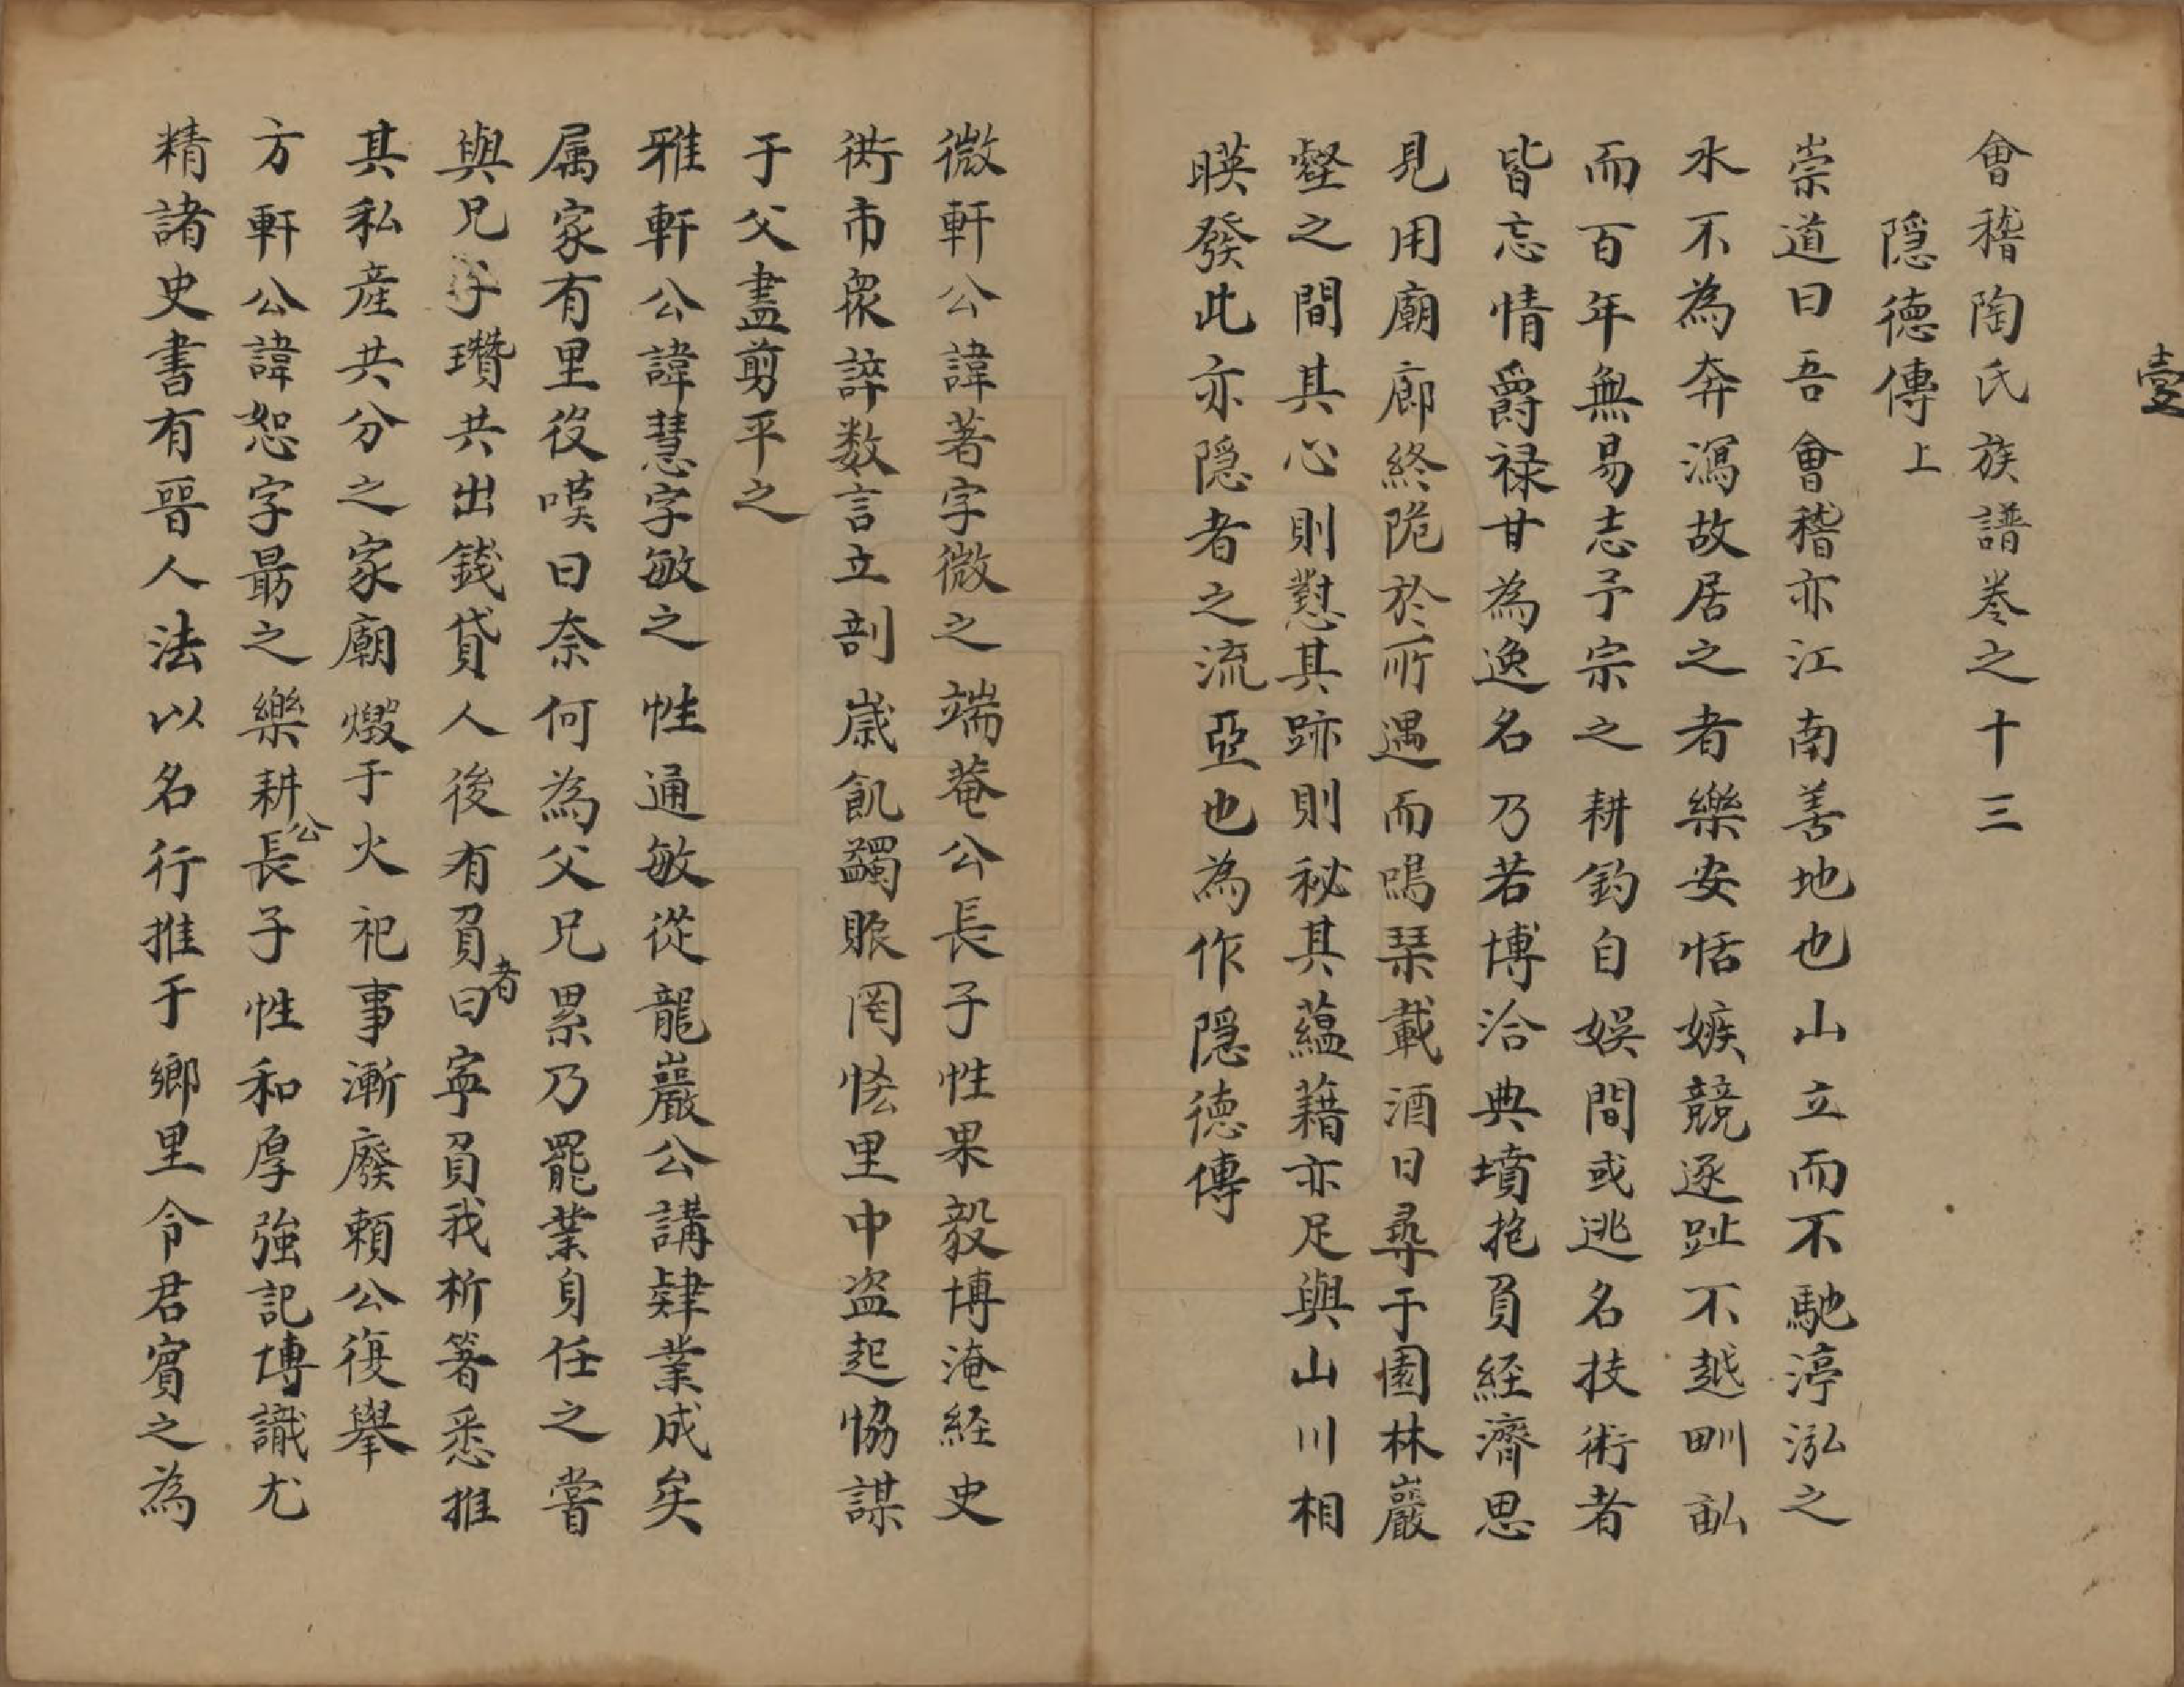 壹
會稽陶氏族譜卷之十三
隠徳傳上
崇道曰吾會稽亦江南善地也山立而不馳渟泓之
水不為奔瀉故居之者樂安恬嫉競逐趾不越甽畝
而百年無易志予宗之耕釣自娛間或逃名技術者
皆忘情爵禄甘為逸名乃若博洽典墳抱負経濟思
見用廟廊終阨於所遇而鳴琹載酒日尋于園林巖
壑之間其心則懟其跡則秘其蘊藉亦足與山川相
暎發此亦隠者之流亞也為作隠徳傳
微軒公諱著字微之端菴公長子性果毅博淹経史
衖市衆誶数言立剖歳飢蠲賑罔恡里中盗起恊謀
于父盡剪平之
雅軒公諱慧字敏之性通敏從龍巖公講肄業成矣
属家有里役嘆曰奈何為父兄累乃罷業身任之嘗
與兄子瓚共出錢貸人後有負者曰寕負我析箸悉推
其私産共分之家廟燬于火祀事漸廢賴公復擧
方軒公諱恕字最之樂耕公長子性和厚強記博識尤
精諸史書有晉人法以名行推于鄉里令君賓之為